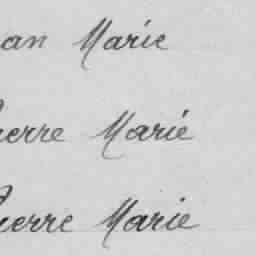 an Marie
ierre Marie
ierre Marie